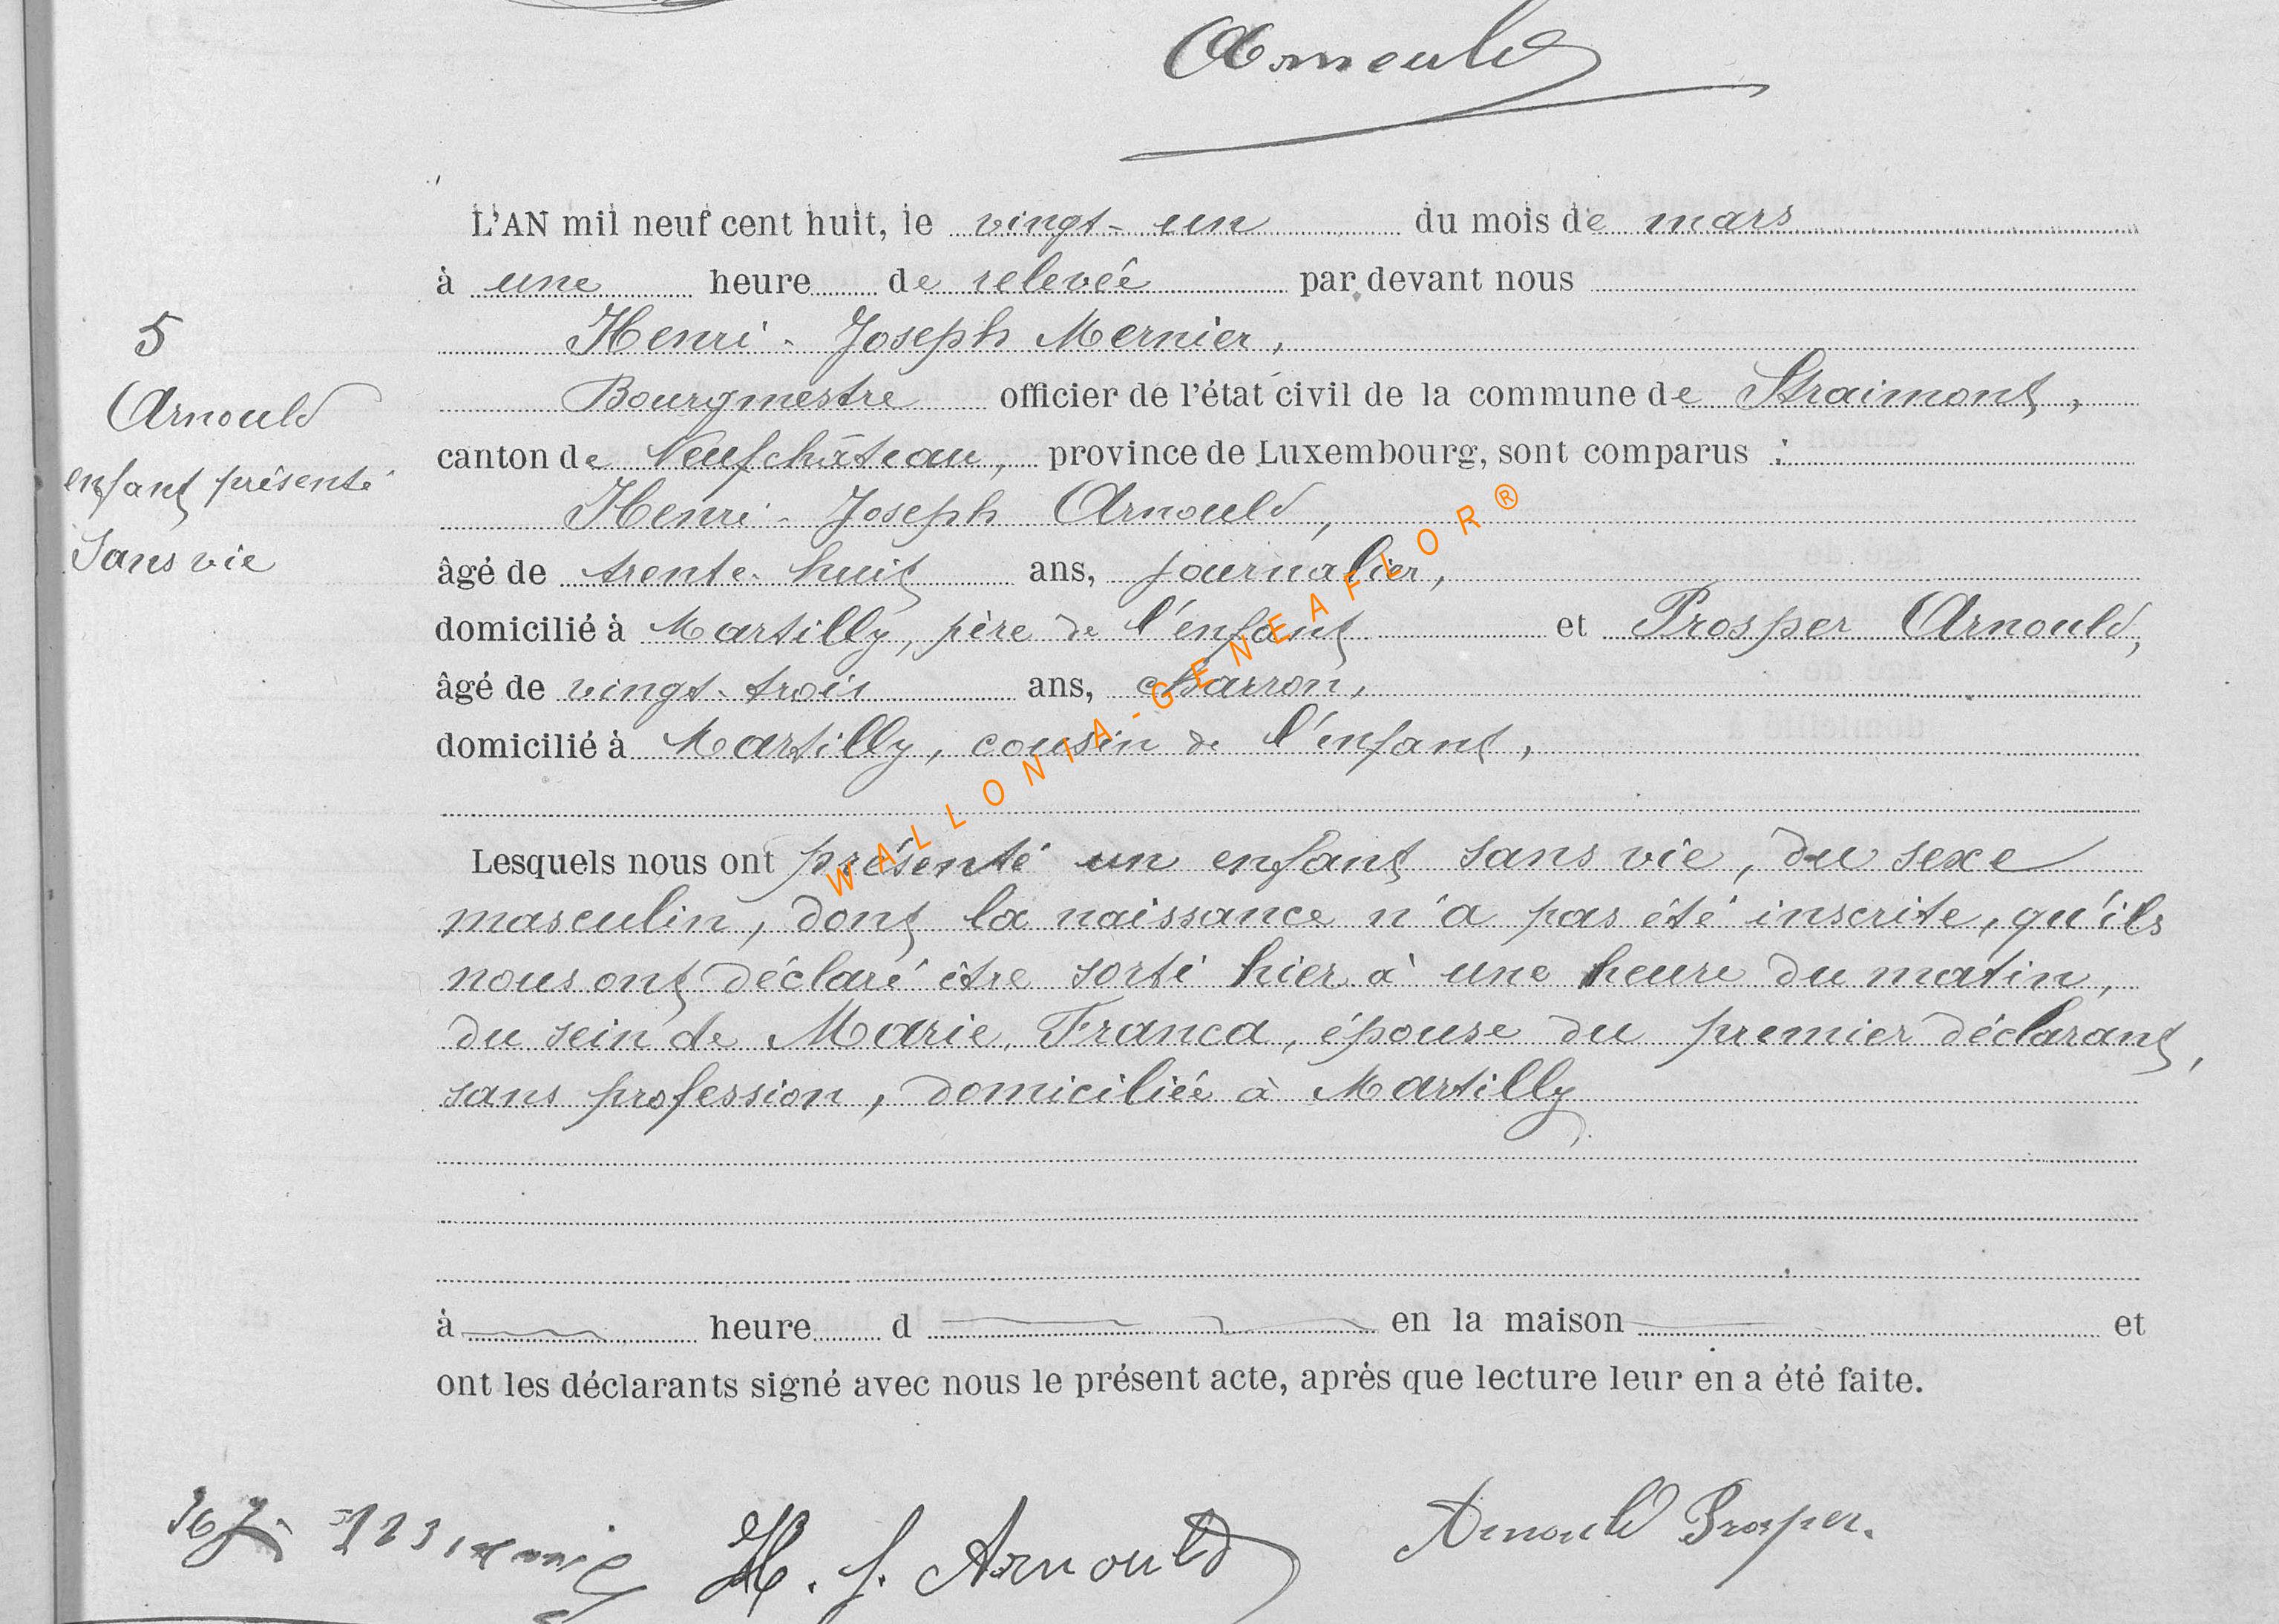 Arnould
L'AN mil neuf cent huit, le vingt-un du mois de mars
à une heure de relevée par devant nous
Henri-Joseph Mernier,
Bourgmestre officier de l'état civil de la commune de Straimont,
canton de Neufchâteau, province de Luxembourg, sont comparus :
Henri-Joseph Arnould,
âgé de trente-huit ans, journalier,
domicilié à Martilly, père de l'enfant et Prosper Arnould,
âgé de vingt-trois ans, charron,
domicilié à Martilly, cousin de l'enfant,
5
Arnould
enfant présenté
Sans vie
Lesquels nous ont présenté un enfant sans vie, du sexe
masculin, dont la naissance n'a pas été inscrite, qu'ils
nous ont déclaré être sorti hier à une heure du matin,
du sein de Marie Franca, épouse du premier déclarant,
sans profession, domiciliée à Martilly
à heure d en la maison et
ont les déclarants signé avec nous le présent acte, après que lecture leur en a été faite.
H. J. Arnould
Arnould Prosper.
WALLONIA-GENEAFLOR®